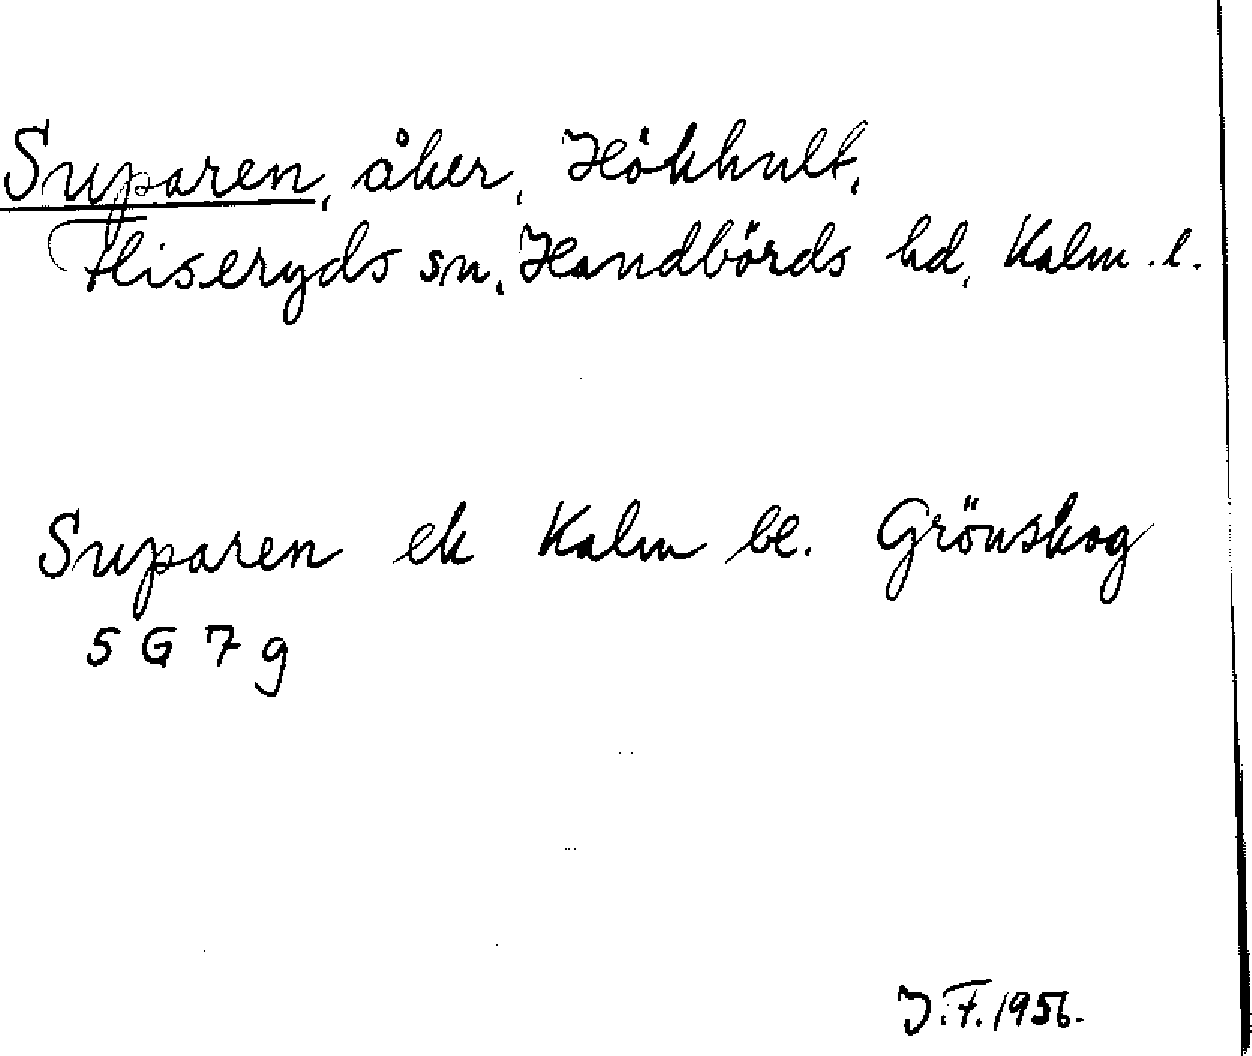 Suparen, åker, Hökhult,
Fliseryds sn, Handbörds hd, Kalm. l.
Suparen ek Kalm bl. Grönskog
5 G 7 g
J.F. 1956.